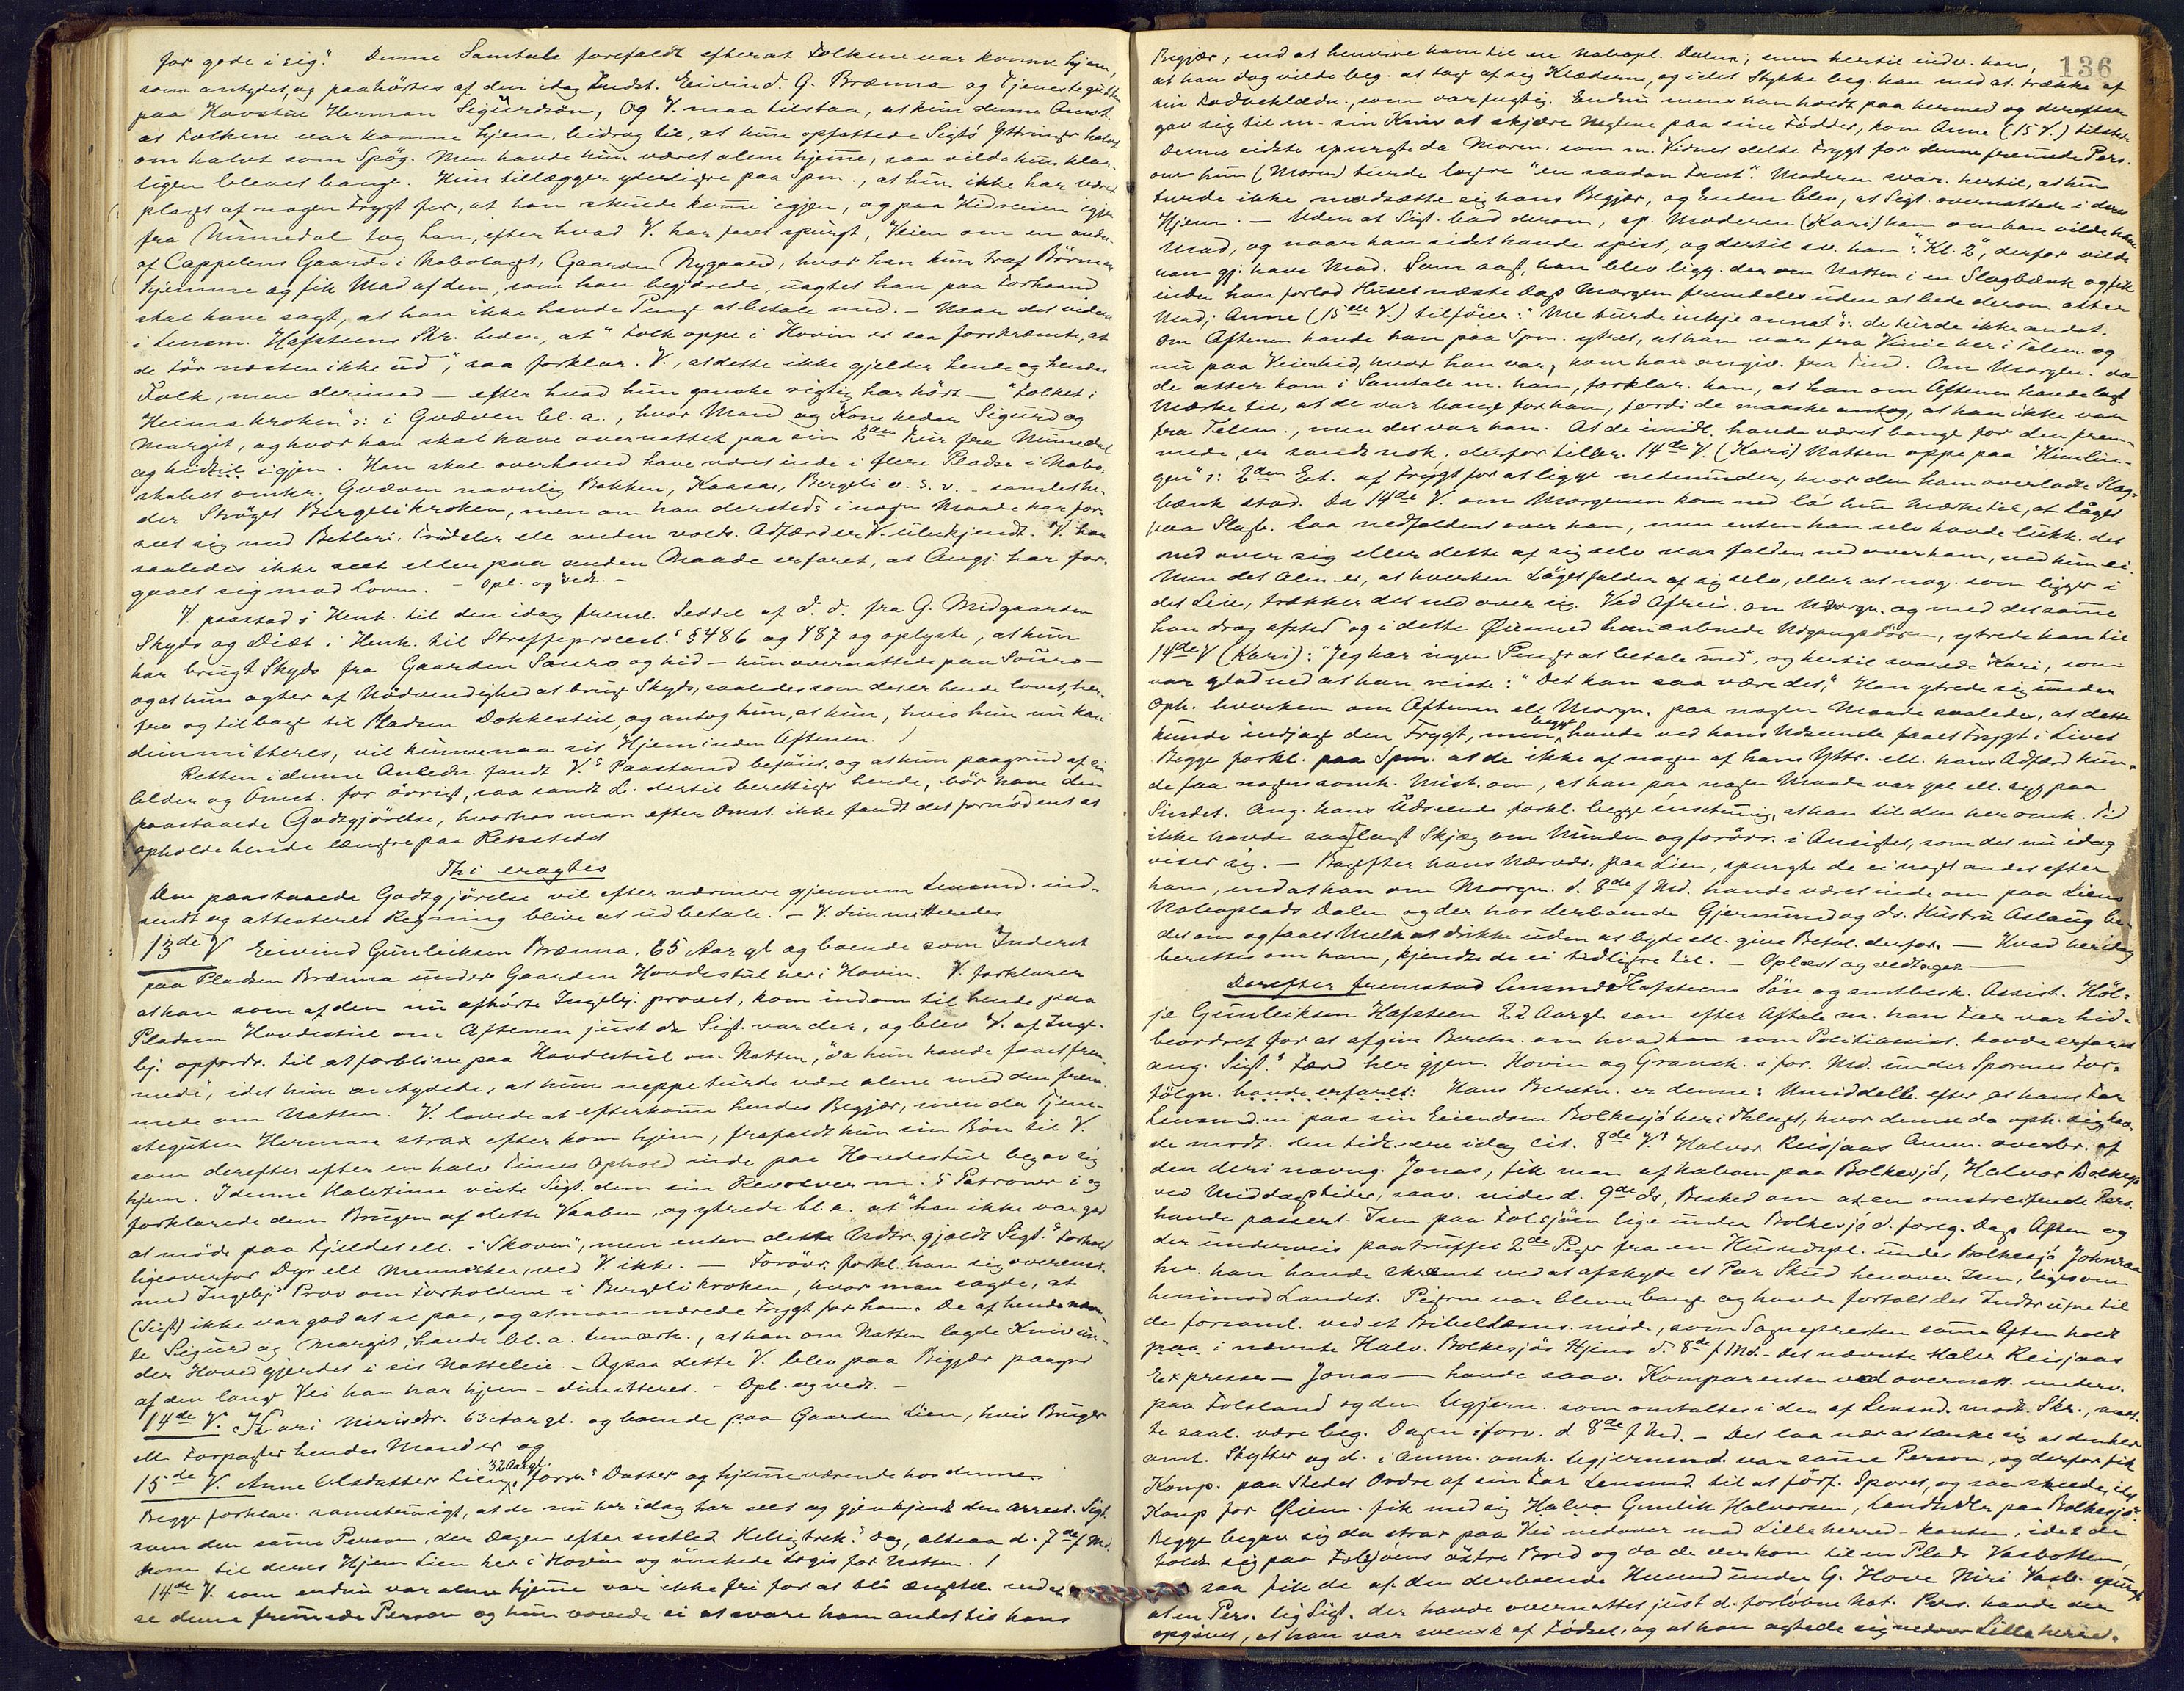 for gode i sig." Denne Samtale forefaldt efterat Folkene var komne hjem,
som antydet, og paahörtes af den idag Indst. Eivind G. Brænna og Tjenestegutten
paa Hovstul Herman Sigurdsön, Og V. maa tilstaa, at kun denne Omst.
at Folkene var komne hjem, bidrog til, at hun opfattede Sigt.s Yttringer halvt
om halvt som Spög. Men havde hun været alene hjemme, saa vilde hun
ligen blevet bange. Hun tillægger yderligere paa Spm., at hun ikke har været
plaget af nogen Frygt for, at han skulde komme igjen, og paa Hidreisen igjen
fra Numedal tog han, efter hvad V. har faaet spurgt, Veien om en anden
af Cappelens Gaarde i Nabolaget, Gaarden Nygaard, hvor han kun traf Börnene
hjemme og fik Mad af dem, som han begjærede, uagtet han paa Forhaand
skal have sagt, at han ikke havde Penge at betale med. - Naar det videre
i Lensm. Hafsteens Skr. heder, at "Folk oppe i Hovin er saa forskræmte, at
de tör næsten ikke ud", saa forklar. V., at dette ikke gjelder hende og hendes
Folk, men derimod - efter hvad hun ganske rigtig har hört - "Folket i
Heimakroken" ɔ: i Gvæven bl. a., hvor Mand og Kone heder Sigurd og
Margit, og hvor han skal have overnattet paa sin 2den Tur fra Numedal
og hidtil igjen. Han skal overhoved have været inde i flere Pladse i Nabo-
skabet omkr. Gvæven navnlig Bakken, Kaasa, Bergeli o. s. v. - samlet he-
der Ströget Bergelikroken, men om han dersteds i nogen Maade har for-
seet sig med Betleri, Trudsler ell anden volds. Adfærd er V. ubekjendt. V. har
saaledes ikke seet eller paa anden Maade erfaret, at Angj. har for-
gaaet sig mod Loven. - Opl. og vedt. -
V. paastod i Henh. til den idag freml. Seddel af d. d. fra G. Midgaarden
Skyds og Diæt i Henh. til Straffeprocesl.s § 486 og 487 og oplyste, at hun
har brugt Skyds fra Gaarden Sauro og hid - hun overnattede paa Sauro -
og at hun agter af Nödvendighed at bruge Skyds, saaledes som det er hende lovet, her-
fra og tilbage til Pladsen Dokkestul, og antog hun, at hun, hvis hun nu kan
dimmitteres, vil kunne naa sit Hjem inden Aftenen. /
Retten i denne Anledn. fandt V.s Paastand beföiet, og at hun paagrund af sin
Alder og Omst. for övrigt, saa sandt L. dertil berettiger hende, bör have den
paastaaede Godtgjörelse, hvorhos man efter Omst. ikke fandt det fornödent at
opholde hende længere paa Retsstedet
Thi eragtes
Den paastaaede Godtgjörelse vil efter nærmere gjennem Lensmd. ind-
sendt og attesteret Regning blive at udbetale. - V. dimmitteredes
13de V Eivind Gunleiksen Brænna, 65 Aar gl og boende som Inderst
paa Pladsen Brænna under Gaarden Hovdestul her i Hovin. V. forklarer
at han som af den nu afhörte Ingebj: provet, kom indom til hende paa
Pladsen Hovdestul om Aftenen just da Sigt. var der, og blev V. af Inge-
bj: opfordr. til at forblive paa Hovdestul om Natten, "da hun havde faaet frem-
mede", idet hun antydede, at hun neppe turde være alene med den frem-
mede om Natten. V. lovede at efterkomme hendes Begjær, men da Tjene-
stegutten Herman strax efter kom hjem, frafaldt hun sin Bön til V.
som derefter efter en halv Times Ophold inde paa Hovdestul begav sig
hjem. I denne Halvtime viste Sigt. dem sin Revolver m. 5 Patroner i og
forklarede dem Brugen af dette Vaaben, og ytrede bl. a. at "han ikke var god
at möde paa Fjeldet ell. i Skoven", men enten dette Udtr. gjaldt Sigt.s Forhold
ligeoverfor Dyr ell Mennesker, ved V. ikke. - Forövr. forkl. han sig overenst.
med Ingebj.s Prov om Forholdene i Bergelikroken, hvor man sagde, at
(Sigt) ikke var god at se paa, og at man nærede Frygt for ham. De af hende nævn-
te Sigurd og Margit, havde bl. a. bemærk., at han om Natten lagde Kniv un-
der Hovedgjerdet i sit Natteleie. - Ogsaa dette V. blev paa Begjær paagrd
af den lange Vei han har hjem - dimitteres. - Opl. og vedt. -
14de V. Kari Nirisdtr. 63 Aar gl. og boende paa Gaarden Lien, hvis Bruger
ell Forpagter hendes Mand er og
15de V. Anne Olsdatter Lien, 32 Aar gl. forr.s Datter og hjemmeværende hos denne.
Begge forklar. samstemmigt, at de nu her idag har seet og gjenkjendt den arrest. Sigt.
som den samme Person, der Dagen efter sistled. Helligtrek.s Dag, altsaa d. 7de f Md.
kom til deres Hjem Lien her i Hovin og önskede Logis for Natten. /
14de V. som endnu var alene hjemme var ikke fri for at bli ængstel. ved at
se denne fremmede Person og hun vovede ei at svare ham andet til hans
136
Begjær, end at henvise ham til en nabopl. Dalen; men hertil indv. han,
at han dog vilde beg. at tage af sig Klæderne, og i det Stykke beg. han med at trække af
sin Fodbeklædn., som var fugtig. Endnu mens han holdt paa hermed og derefter
gav sig til m. sin Kniv at skjære Neglene paa sine Födder, kom Anne (15 V.) tilstede
Denne sidste spurgte da Moren, som m. Vidnet delte Frygt for denne fremmede Pers.
om hun (Moren) turde logere "en saadan Fant". Moderen svar. hertil, at hun
turde ikke modsætte sig hans Begjær, og Enden blev, at Sigt. overnattede i deres
Hjem. - Uden at Sigt. bad derom, sp. Moderen (Kari) ham om han vilde have
Mad, og naar han sidst havde spist, og dertil sv. han: "Kl. 2", derfor vilde
han gj. have Mad. Som sagt, han blev ligg. der om Natten i en Slagbænk og fik
inden han forlod Huset næste Dags Morgen fremdeles uden at bede derom atter
Mad; Anne (15de V.) tilföier: "Me turde inkje annat" ɔ: de turde ikke andet.
Om Aftenen havde han paa Spm. ytret, at han var fra Vinje her i Telem. og
nu paa Veien hid, hvor han var, kom han angiv. fra Tind. Om Morgen. da
de atter kom i Samtale m. ham, forklar. han, at han om Aftenen havde lagt
Mærke til, at de var bange for ham, fordi de maaske antog, at han ikke var
fra Telem., men det var han. At de imidl. havde været bange for den frem-
mede, er sandt nok, derfor tilbr. 14de V. (Kari) Natten oppe paa "Himlin-
gen" ɔ: 2den Et. af Frygt for at ligge nedenunder, hvor den ham overladte Slag-
bænk stod. Da 14de V. om Morgenen kom ned la' hun Mærke til, at Låget
paa Slagb. laa nedfaldent over ham, men enten han selv havde lukk. det
ned over sig eller dette af sig selv var falden ned over ham, ved hun ei.
Men det Alm. er, at hverken Låget falder af sig selv, eller at nog. som ligger i
det Leie, trækker det ned over sig. Ved Afreis. om Morgn. og med det samme
han drog afsted og i dette Öiemed han aabnede Udgangsdören, ytrede han til
14de V (Kari): "Jeg har ingen Penger at betale med", og hertil svarede Kari, som
var glad ved at han reiste: "Det kan saa være det," Han ytrede sig under
Oph. hverken om Aftenen ell Morgn. paa nogen Maade saaledes, at dette
kunde indjage dem Frygt, men begge havde ved hans Udseende faaet Frygt i Livet
Begge forkl. paa Spm. at de ikke af nogen af hans Yttr. ell. hans Adfærd kun-
de faa nogensomh. Mist. om, at han paa nogen Maade var gal ell. syg paa
Sindet. Ang. hans Udseende forkl. begge enstemmig, at han til den her omh. Tid
ikke havde saa langt Skjæg om Munden og forövr. i Ansigtet, som det nu idag
viser sig. - Bagefter hans Nærvds. paa Lien, spurgte de ei noget andet efter
ham, end at han om Morgn. d. 8de f Md. havde været inde om paa Liens
Naboplads Dalen og der hos derboende Gjermund og ds. Hustru Aslaug be-
det om og faaet Melk at drikke uden at byde ell. give Betal. derfor. - Hvad her idag
berettes om ham, kjendte de ei tidligere til. - Oplæst og vedtaget -
Derefter fremstod Lensmds Hafsteens Sön og amtbesk. Assist. Höl-
je Gunleiksen Hafsteen 22 Aar gl. som efter Aftale m. hans Far var hid-
beordret for at afgive Beretn. om hvad han som Politiassist. havde erfaret
ang. Sigt.s Færd her gjen. Hovin og Gransh. i for. Md. under Sporenes For-
fölgn. havde erfaret: Hans Beretn. er denne: Umiddelb. efter at hans Far
Lensmd.en paa sin Eiendom Bolkesjö her i Thlagt, hvor denne da oph. sig, hav-
de modt. den tidl. ere idag cit. 8de V.s Halvor Reisjaas Anm. overbr. af
den deri navng. Jonas, fik man af Naboen paa Bolkesjö, Halvor Bolkesjö
ved Middagstider, saav. vides d. 9de ds, Besked om at en omstreifende Pers.
havde passert Isen paa Folsjöen lige under Bolkesjö d. foreg. Dags Aften og
der underveis paatruffet 2de Piger fra en Husmdspl. under Bolkesjö Johnraa
hv. han havde skræmt ved at afskyde et Par Skud henover Isen, ligesom
henimod Landet. Pigerne var blevne bange og havde fortalt det Indtrufne til
de forsaml. ved et Bibellæsns. möde, som Sognepresten samme Aften holdt
paa i nævnte Halv. Bolkesjös Hjem d. 8de f Md. - Det nævnte Halv Reisjaas
Expresse - Jonas - havde saav. Komparenten ved overnatt. underv.
paa Folsland og den Ugjern. som omtaltes i den af Lensmd. modt. Skr., maat-
te saal. være beg. Dagen iforv. d 8de f Md. - Det laa nær at tænke sig at den her
omt. Skytter og d. i Anm. omh. Ugjernsmd. var samme Person, og derfor fik
Komp. paa Stedet Ordre af sin Far Lensmd. til at forf. Sporet, og saa skeede, idet
Komp for Öiem. fik med sig Halvor Gunlik Halvorsen, Landhdlr. paa Bolkesjö.
Begge begav sig da strax paa Vei nedover mod Lilleherred-kanten, idet de
holdt sig paa Folsjöens östre Bred og da de der kom til en Plads Vasbotten,
saa fik de af den derboende Husmd under G. Hove Niri Vasb. spurgt
at en Pers. lig Sigt. der havde overnattet just d. forlöbne Nat. Pers. havde der
opgivet, at han var svensk af Födsel, og at han agtede sig nedover Lilleherred.